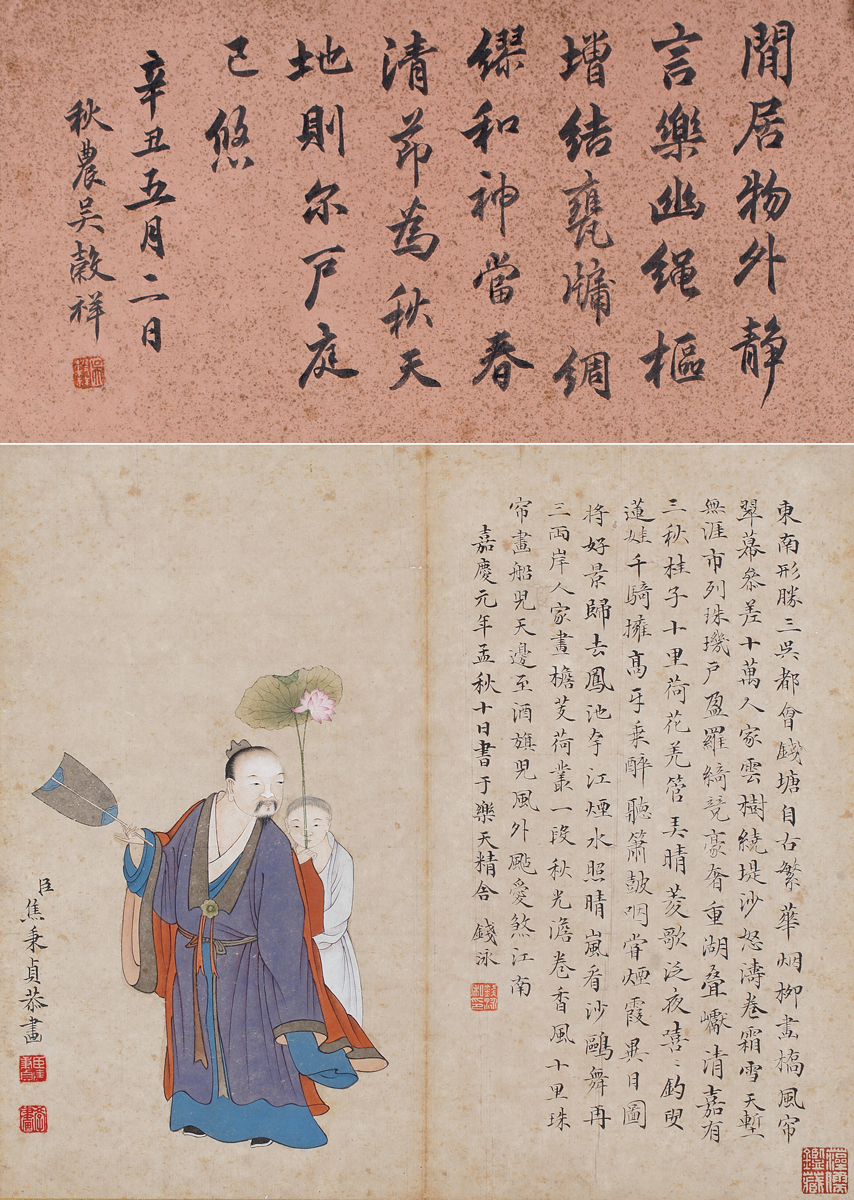 閒居物外静
言樂幽绳樞
增結甕牖綢
繆和神當春
清節為秋天
地則尔户庭
已悠
辛丑五月二日
秋農吴穀祥
東南形勝三吳都會錢塘自古繁華烟柳畫橋風帘
翠幕參差十萬人家雲樹繞堤沙怒濤卷霜雪天塹
無涯市列珠璣戶盈羅綺競豪奢重湖疊巘清嘉有
三秋桂子十里荷花羌管弄晴菱歌泛夜嘻〻釣叟
蓮娃千騎擁髙牙乘醉聽簫鼓吟賞煙霞異日圖
將好景歸去鳳池夸江煙水照晴嵐看沙鷗舞再
三兩岸人家畫檐芰荷叢一段秋光澹卷香風十里珠
帘畫船兒天邊至酒旗兒風外颭愛煞江南
嘉慶元年孟秋十日書于樂天精舍 錢泳
臣焦秉貞恭畫